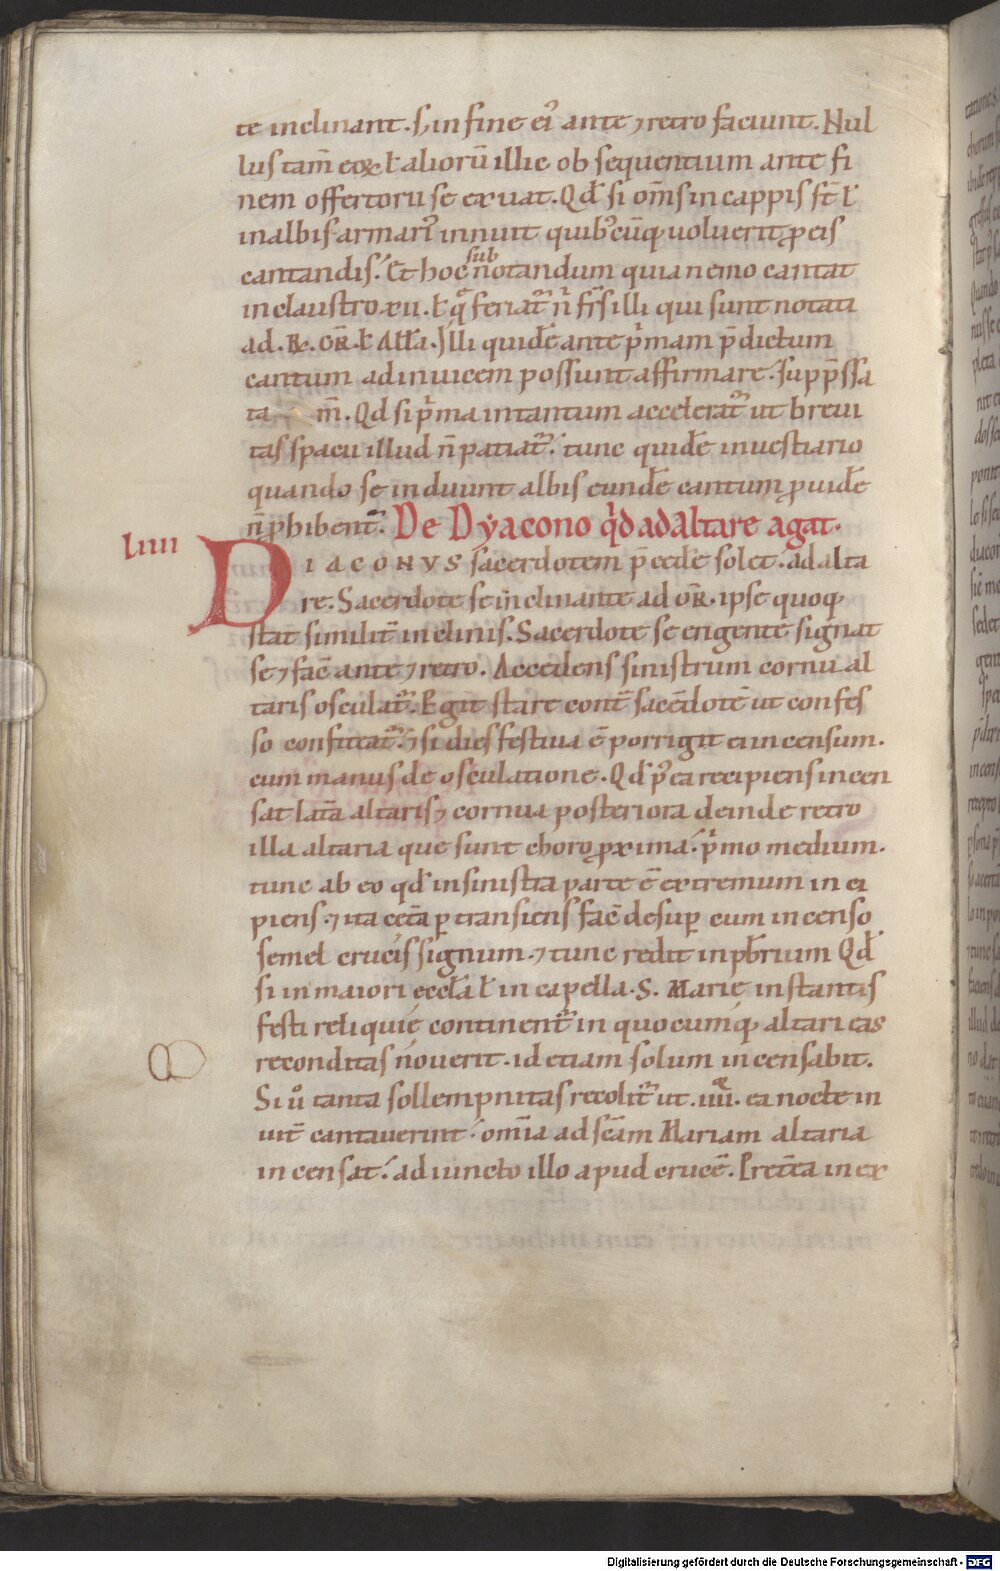 te inclinant. S; in fine ei᷒ ante ⁊ retro faciunt. Nul
lus tam̄ eoꝝ ł alioꝝ illic ob sequentium ante fi
nem offertorii se exuat. Qd̄ si om̄s in cappis st̄ ł
in albis armari᷒ innuit quib᷒cūq; uoluerit ꝓ eis
cantandis. Et hoc subnotandum quia nemo cantat
in claustro xii. ł q̄ feriat᷑ n̄ fr̄s illi qui sunt notati
ad. R. OR̄. ł All̄a. Illi quidē ante p̄mam p̄dictum
cantum adinuicem possunt affirmare. sup p̄ssa
ta m̄. Qd si p̄ma intantum accelerat᷑ ut breui
tas spacii illud n̄ patiat᷑. tunc quidē in uestiario
quando se induunt albis eundē cantum ꝓuidē
n̄ ꝓhibent᷑. De Dyacono qd ad altare agat.
Liiii
DIACONVS sacerdotem p̄cede solet. ad alta
re. Sacerdote se inclinante ad OR̄. ipse quoq;
stat similit̄ inclinis. Sacerdote se erigente signat
se ⁊ fac̄ ante ⁊ retro. Accedens sinistrum cornu al
taris osculat᷑. Egit stare cont̄ sac̄dotē ut confes
so confiteat᷑. ⁊ si dies festiua ē porrigit ei incensum.
cum manus de osculatione. Qd p᷒ ea recipiens incen
sat lat̄a altaris ⁊ cornua posteriora deinde retro
illa altaria que sunt choro ꝓxima. p̄mo medium.
tunc ab eo qd̄ in sinistra parte ē extremum in ci
piens. ⁊ ita cet̄a ꝑtransiens fac̄ desuꝑ cum incenso
semel crucis signum. ⁊ tunc redit in pb̄rium Qd̄
si in maiori eccł̄a ł in capella. S. Marie instantis
festi reliquię continent᷑ in quocumq; altari eas
reconditas nouerit. id etiam solum incensabit.
Si ů tanta sollempnitas recolit᷑ ut. iiii. ea nocte in
uit̄ cantauerint. om̄ia ad sc̄am Mariam altaria
incensat. adiuncto illo apud crucē. Pret̄ea in ex
Digitalisierung gefördert durch die Deutsche Forschungsgemeinschaft - DFG